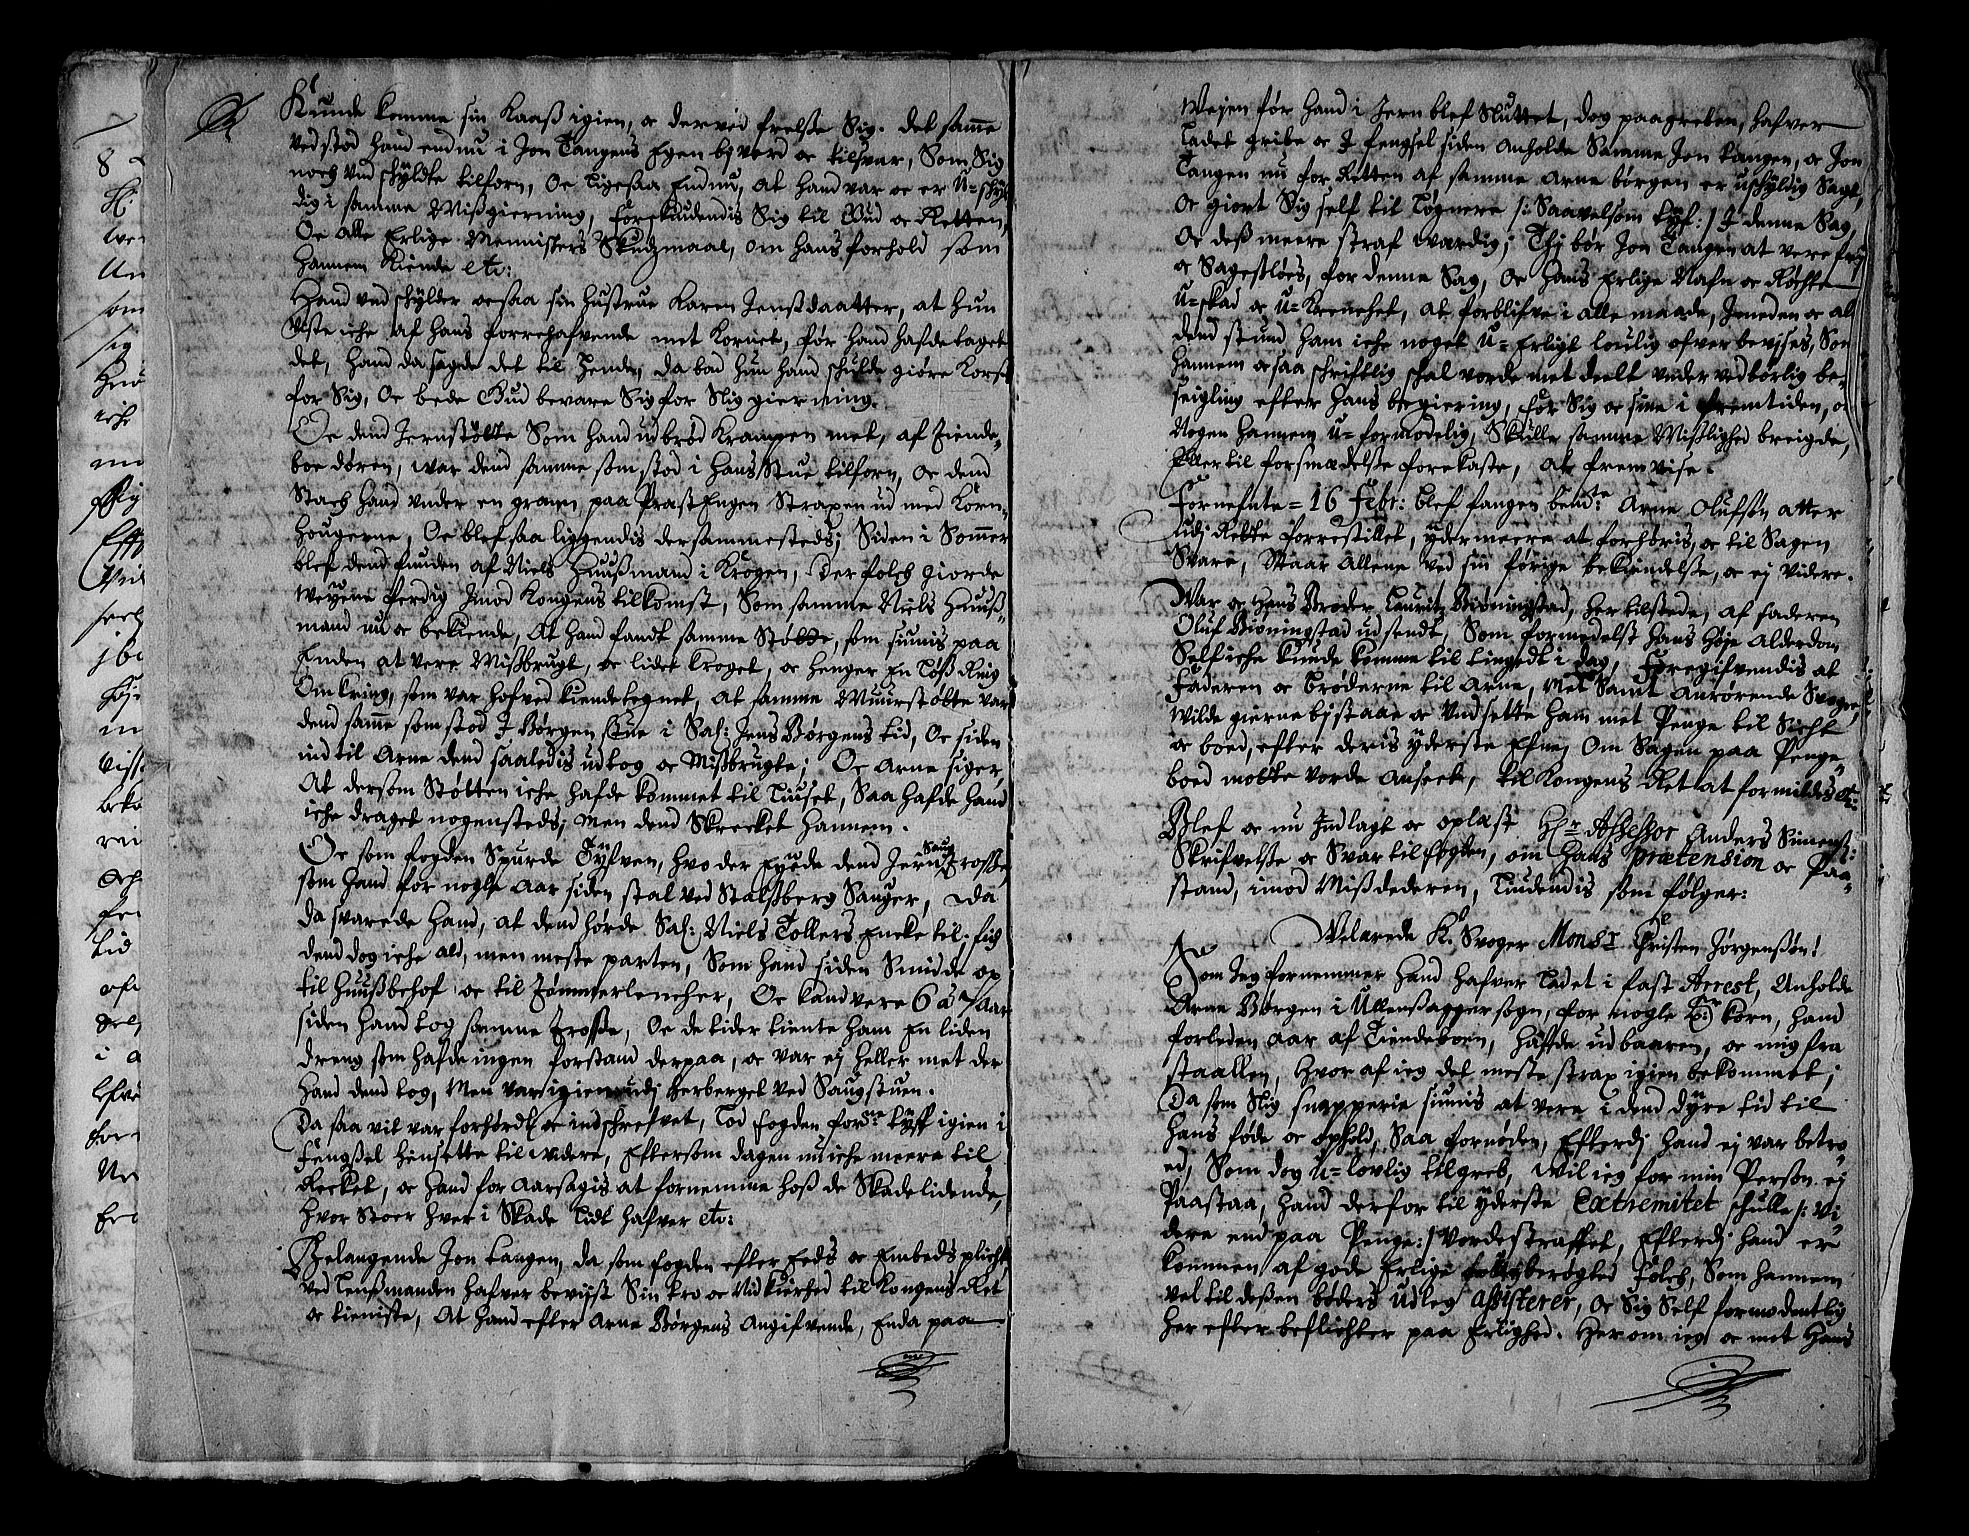 Kunde komme sin Kaaß igien, oc derved frelse Sig. det samme
vedstod hand endnu i Jon Tangens Egen byværd oc tilsvar, Som Sig
noch und schyldte tilforn, Oc ligesaa Endnu, at hand var oc er U=schyl
dig i samme Mißgierning, forskiudendis Sig til Gud oc Retten,
Oc alle Erlige Menniskers Skudzmaal, om hans forhold som
hannem Kiende etc:
Hand undschylder ocsaa sin hustrue Karen Jenßdaatter, at hun
viste iche af hans forrehafvende met Kornet, før hand hafde taget
det, hand da sagde det til hende, da bad hun hand schulde giøre Korset
for Sig, Oc bede Gud bevare Sig for Slig gierning.
Oc dend Jernstøtte Som hand udbrød Krampen met, af Tiende=
boe døren, war dend samme som stod i hans Stue tilforn, Oc dend
Stach hand under en grann paa PræstEngen Strapen ud med Korn=
hougerne, Oc blef saa liggendis dersammesteds; Siden i Sommer
blef dend funden af Niels Huußmand i Krogen, Der folch giorde
Weyene ferdig Imod Kongens tilkomst, Som samme Niels Huuß=
mand nu oc bekiende, At hand fandt samme Støtte, som siunis paa
Enden at vere Mißbrugt, oc lidet kroget, oc henger En Løß Ring
omkring, som var hofved kiendetegnet, at samme Muurstøtte var
dend samme som stod I Børgen Stue i Sal: Jens Børgens tid, Oc siden
ind til Arne dend saaledis udtog oc Mißbrugte; Oc Arne siger,
At dersom Støtten iche hafde kommet til Liuset, Saa hafde hand
iche draget nogensteds; Men dend Skrecket hannem.
Oc som fogden Spurde Tyfven, hvo der Eyede dend Jern Saug Trosse,
som hand for nogle Aar siden stal ved Stalsberg Sauger, Da
da svarede hand, at dend hørde Sal: Niels Tollers Encke til, fich
dend dog iche ald, men meste parten, Som hand siden Smidde op
til huußbehof oc til Tømmerlencher, Oc kand vere 6 á 7 Aar
siden hand tog samme Trosse, Oc de tider tiente ham En liden
dreng som hafde ingen forstand derpaa, oc var ej heller met der
hand dend tog, Men var igien udj herberget ved Saugstuen.
Da saa vit var forhørdt oc indschrefvet, Lod fogden fordte tyff igien i
Fengßel hensette til videre, Eftersom dagen nu iche meere til
Recket, oc hand for aarsagis at fornemme hoß de Skadelidende,
hvor Stoer hver i Skade Lidt hafver etc:
Belangende Jon tangen, da som fogden efter Eeds oc Embeds plicht
ved Lenßmanden hafver beviist Sin tro oc Nidkierhed til Kongens Ret
oc tieniste, At hand efter Arne Børgens Angifvende, Enda paa
Weyen før hand i Jern blef Sluttet, dog paagreben, hafver
Ladet gribe oc I fengsel siden anholde Samme Jon tangen, oc Jon
Tangen nu for Retten af samme Arne børgen er uschyldig Sagt,
Oc giort Sig self til Løgnere /: Saavelsom tyf :/ I denne Sag,
Oc deß meere straf wærdig; Thj bør Jon Tangen at vere frj
oc Sagesløes, for denne Sag, Oc hans Erlige Nafn oc Røchte
U=skad oc U=Krenchet, at forblifve i alle maade, Imeden oc al
dend stund ham iche noget U=Erligt loulig ofverbevises, Som
hannem ocsaa schriftlig schal vorde met deelt under vedbørlig be=
seigling efter hans begiering, for Sig oc sine i fremtiden, om
Nogen hannem U=formodelig, Skulle samme Mißlighed breigde,
Eller til forsmædelse forekaste, at fremvise.
Fornefnte = 16 Febr: blef fangen bemte Arne Olufsøn atter
udj Rette forrestillet, ydermeere at forhøris, oc til Sagen
Svare, Staar Allene ved sin førige bekiendelse, oc ej Videre.
War oc hans Broder Lauritz Biøningstad, her tilstede, af faderen
Oluf Biøningstad udsendt, Som formedelst hans høje Alderdom
Self iche kunde komme til tingedt i dag, Foregifvendis at
Faderen oc brøderne til Arne, Met Samt Anrørende Svogre,
Wilde gierne bystaae oc Undsette ham met Penge til Sicht
oc boed, efter deris yderste Efne, Om Sagen paa Penge=
boed motte vorde anseet, til Kongens Ret at formildes etc:
Blef oc nu Indlagt oc oplæst Hr Assessor Anders Simenß:
Skrifvelse oc Svar til fogden, om hans prætension oc Paa=
stand, imod Mißdederen, Liudendis som følger:
Velærede K. Svoger Monsr Christen Jørgensøn!
Som Jeg fornemmer hand hafver Ladet i fast Arrest, Anholde
Arne Børgen i Ullensagger sogn, for nogle Tr: korn, hand
forleden aar af Tiendeboen, hafde udbaaren, oc mig fra
staallen, hvor af ieg det meste strax igien bekommet;
Da som Slig snapperie siunis at vere i dend dyre tid til
hans føde oc ophold, Saa fornøden, Efterdj hand ej var betro=
ed, Som dog U=lovlig tilgreb, Wil ieg for min Person ej
Paastaa, hand derfor til yderste Extremitet schulle /: vi
dere end paa Penge :/ Vorde straffet, Efterdj hand er
kommen af gode Erlige berøgted Folch, Som hannem
vel til deßen bøders udleg assisterer, Oc Sig Self formodentlig
her efter beflichter paa Erlighed. Herom ieg oc met hans